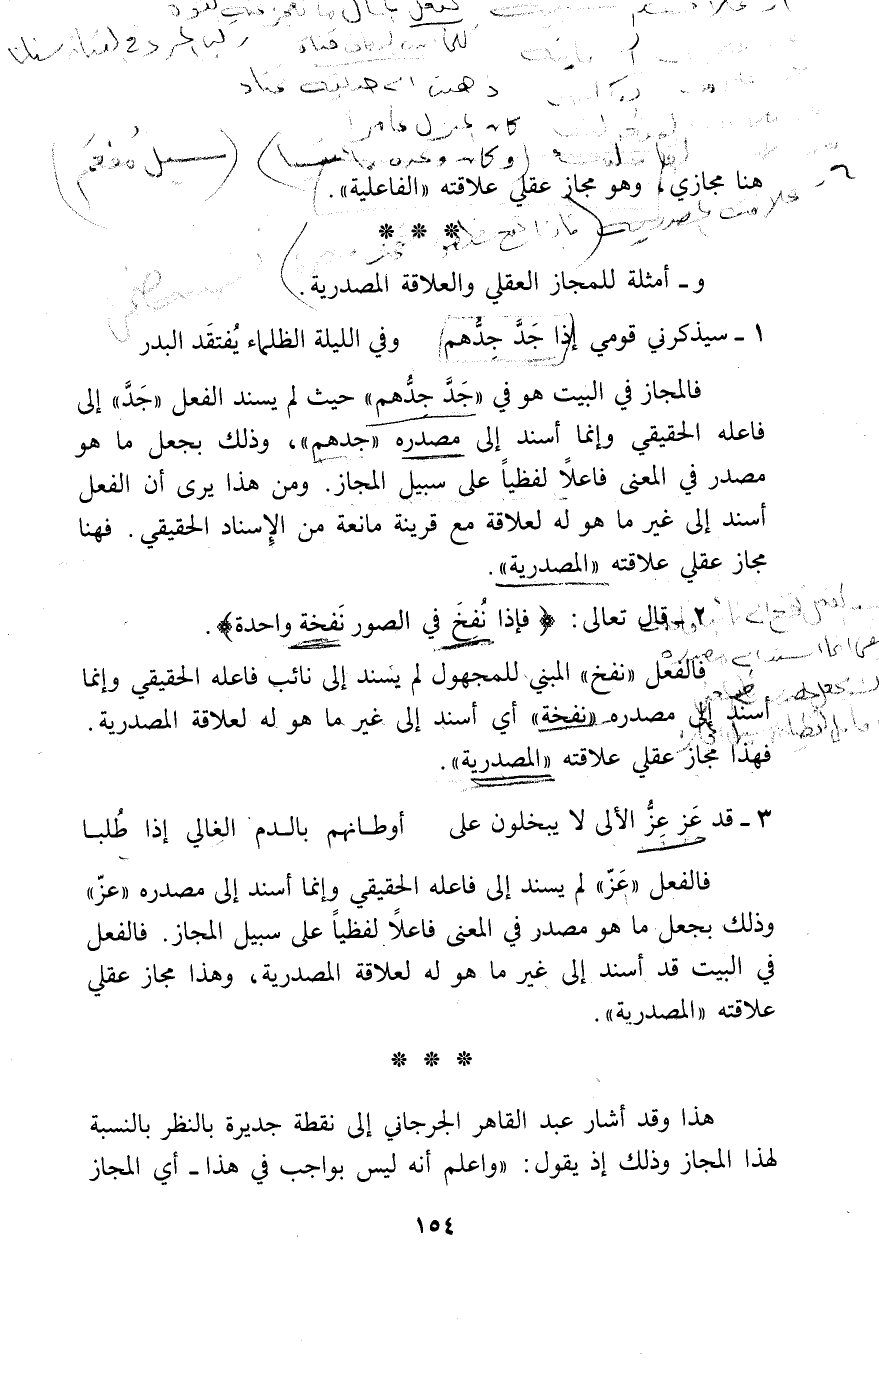 كان المنزل عامرا
(سيل مُفعَم)
هنا مجازي، وهو مجاز عقلي علاقته «الفاعلية».
* * *
و - أمثلة للمجاز العقلي والعلاقة المصدرية.
١ - سيذكرني قومي إذا جَدَّ جِدُّهم وفي الليلة الظلماء يُفتقَد البدر
فالمجاز في البيت هو في «جَدَّ جِدُّهم» حيث لم يسند الفعل «جَدَّ» إلى
فاعله الحقيقي وإنما أسند إلى مصدره «جدهم»، وذلك بجعل ما هو
مصدر في المعنى فاعلاً لفظياً على سبيل المجاز. ومن هذا يرى أن الفعل
أسند إلى غير ما هو له لعلاقة مع قرينة مانعة من الإسناد الحقيقي. فهنا
مجاز عقلي علاقته «المصدرية».
٢ - قال تعالى: ﴿فإذا نُفِخَ في الصور نَفخة واحدة﴾.
فالفعل «نفخ» المبني للمجهول لم يسند إلى نائب فاعله الحقيقي وإنما
أسند إلى مصدره «نفخة» أي أسند إلى غير ما هو له لعلاقة المصدرية.
فهذا مجاز عقلي علاقته «المصدرية».
٣ - قد عَز عِزُّ الألى لا يبخلون على أوطانهم بالدم الغالي إذا طُلبا
فالفعل «عَزّ» لم يسند إلى فاعله الحقيقي وإنما أسند إلى مصدره «عزّ»
وذلك بجعل ما هو مصدر في المعنى فاعلاً لفظياً على سبيل المجاز. فالفعل
في البيت قد أسند إلى غير ما هو له لعلاقة المصدرية، وهذا مجاز عقلي
علاقته «المصدرية».
* * *
هذا وقد أشار عبد القاهر الجرجاني إلى نقطة جديرة بالنظر بالنسبة
لهذا المجاز وذلك إذ يقول: «واعلم أنه ليس بواجب في هذا - أي المجاز
١٥٤